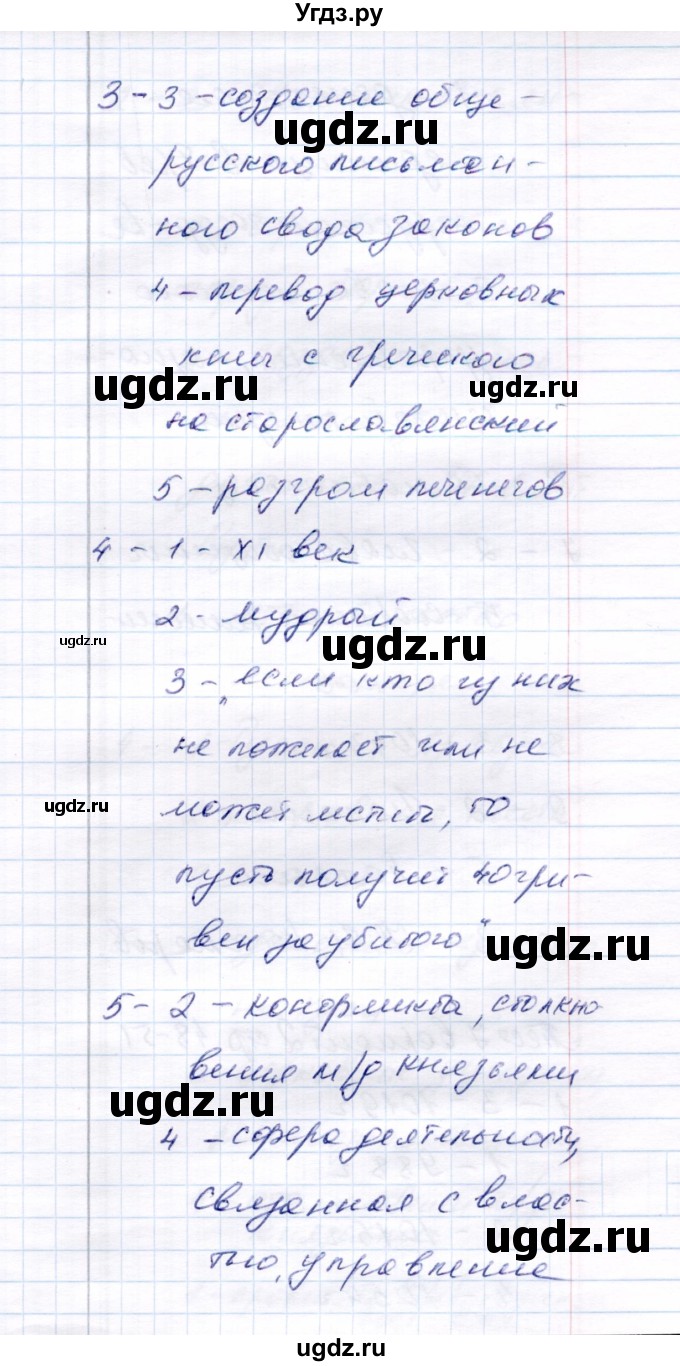 Угдз.ру
3 - 3 - создание обще -
ugdz.ru
русского письмен -
ного свода законов
4 - перевод церковных
книг с греческого
ugdz.ru ugdz.ru
на старославянский
5 - разгром печенегов
4 - 1 - XI век
2 - Мудрый
ugdz.ru ugdz.ru
3 - „если кто из них
не пожелает или не
ugdz.ru
может мстить, то
пусть получит 40 гри-
вен за убитого"
ugdz.ru
5 - 2 - конфликты, столкно
вения м/д князьями
ugdz.ru
4 - сфера деятельности,
связанная с влас-
тью, управление
ugdz.ru